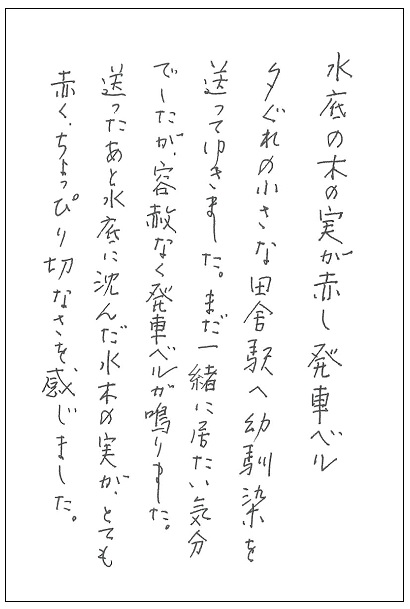 水底の木の実が赤し発車ベル
夕ぐれの小さな田舎駅へ幼馴染を
送ってゆきました。まだ一緒に居たい気分
でしたが、容赦なく発車ベルが鳴りました。
送ったあと水底に沈んだ水木の実が、とても
赤く、ちょっぴり切なさを、感じました。